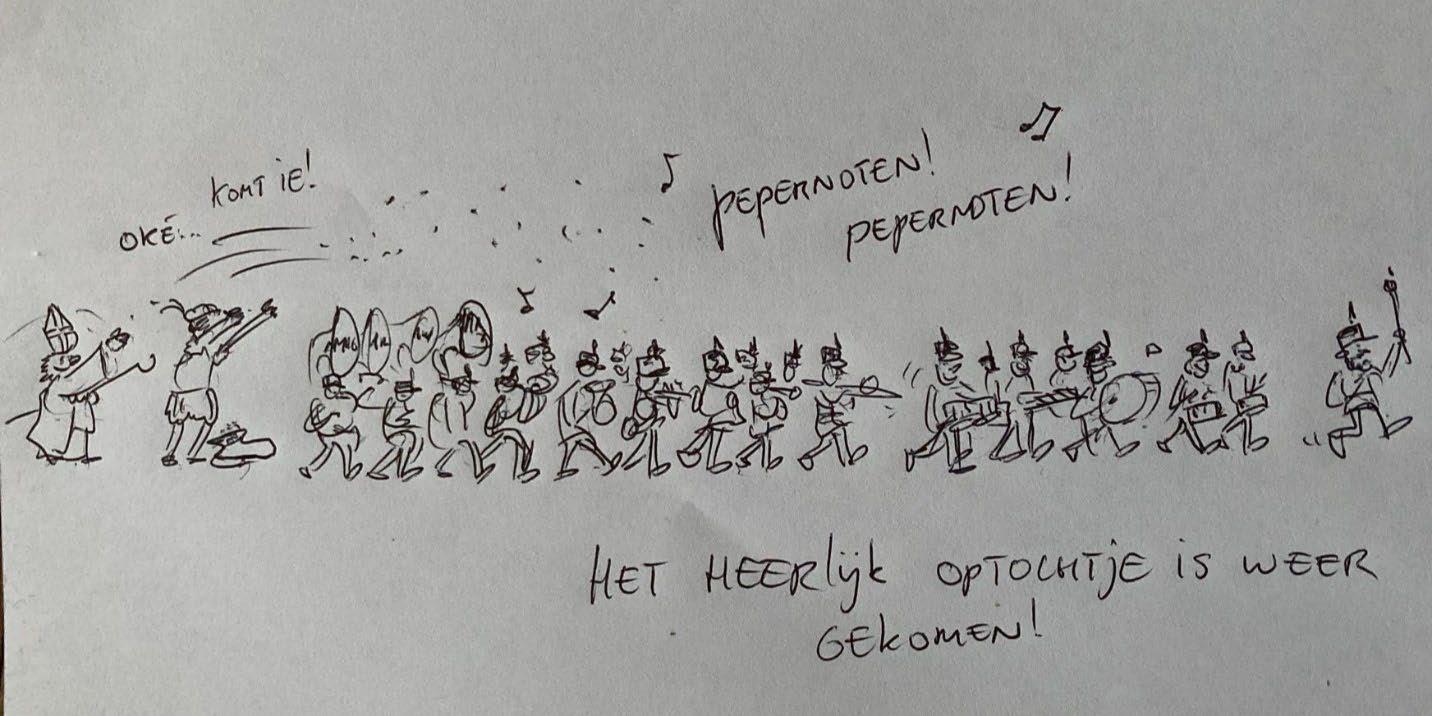 OKÉ...
KOMT IE!
PEPERNOTEN!
PEPERNOTEN!
HET HEERLIJK OPTOCHTJE IS WEER
GEKOMEN!